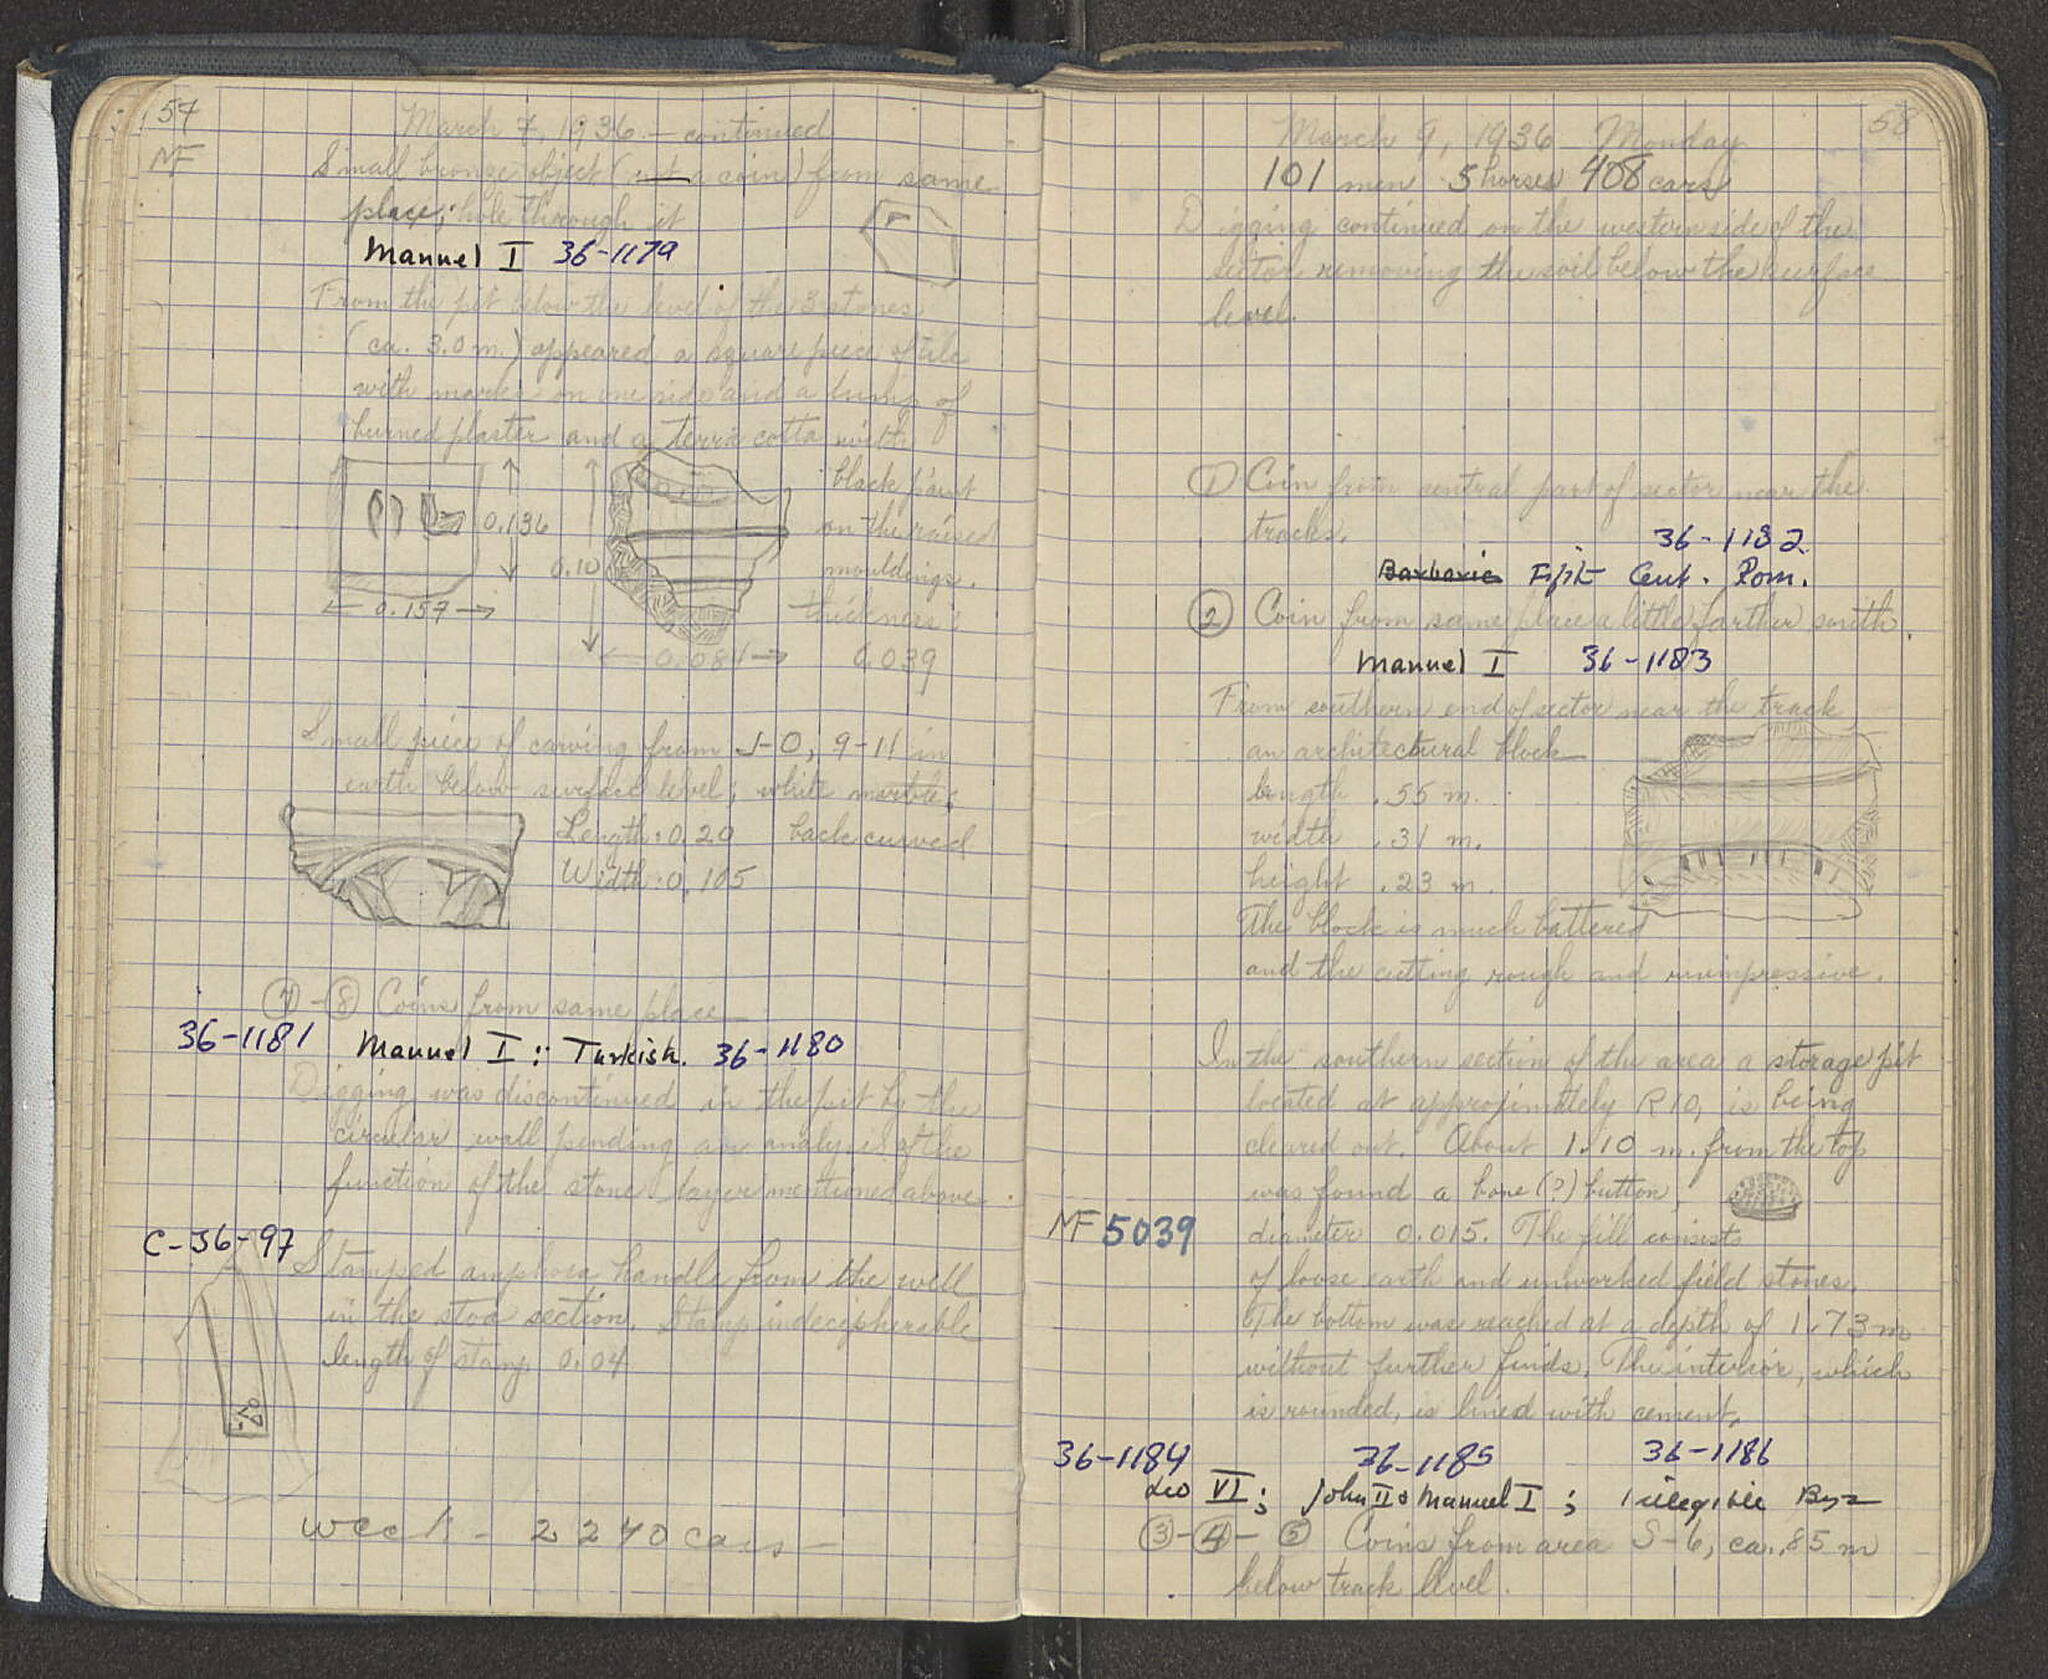 57
March 7, 1936 — continued
MF
Small bronze object (not a coin) from same
place; hole through it
Manuel I 36-1179
From the pit below the level of the 3 stones
(ca. 3.0 m.) appeared a square piece of tile
with marks on one side and a lump of
burned plaster and a terra cotta with
black paint
on the raised
mouldings.
thickness:
0.039
0.136
0.157
0.10
0.081
Small piece of carving from J-O, 9-11 in
earth below surface level; white marble;
Length: 0.20 back curved
Width: 0.105
⑦-⑧ Coins from same place
36-1181 Manuel I :: Turkish. 36-1180
Digging was discontinued in the pit by the
circular wall pending an analysis of the
function of the stone layer mentioned above.
C-36-97
Stamped amphora handle from the well
in the stoa section. Stamp indecipherable
length of stamp 0.04
week - 2240 cars —
58
March 9, 1936 Monday
101 men 5 horses 408 cars
Digging continued on the western side of the
sector removing the soil below the surface
level.
① Coin from central part of sector near the
tracks.
36-1182
Barbaric Fifth Cent. Rom.
② Coin from same place a little farther south.
Manuel I 36-1183
From southern end of sector near the track
an architectural block
length .55 m.
width .31 m.
height .23 m.
The block is much battered
and the cutting rough and unimpressive.
In the southern section of the area a storage pit
located at approximately R 10, is being
cleared out. About 1.10 m. from the top
was found a bone (?) button
MF 5039
diameter 0.015. The fill consists
of loose earth and unworked field stones.
The bottom was reached at a depth of 1.73 m
without further finds. The interior, which
is rounded, is lined with cement.
36-1184 36-1185 36-1186
Leo VI; John II o Manuel I; illegible Byz
③-④-⑤ Coins from area S-6, ca. .85 m
below track level.